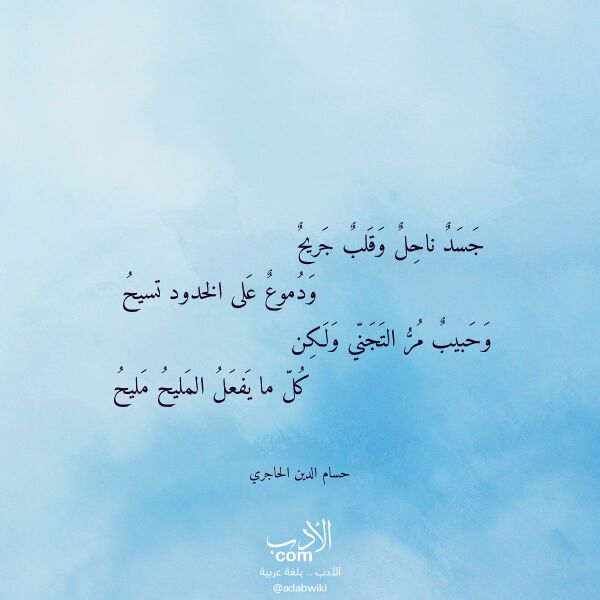 جَسَدٌ ناحِلٌ وَقَلبٌ جَريحٌ
وَدُموعٌ عَلى الخدود تسيحُ
وَحَبيبٌ مُرُّ التَجَنّي وَلَكِن
كُلّ ما يَفعَلُ المَليحُ مَليحُ
حسام الدين الحاجري
الأدب
com
الأدب .. بلغة عربية
@adabwiki